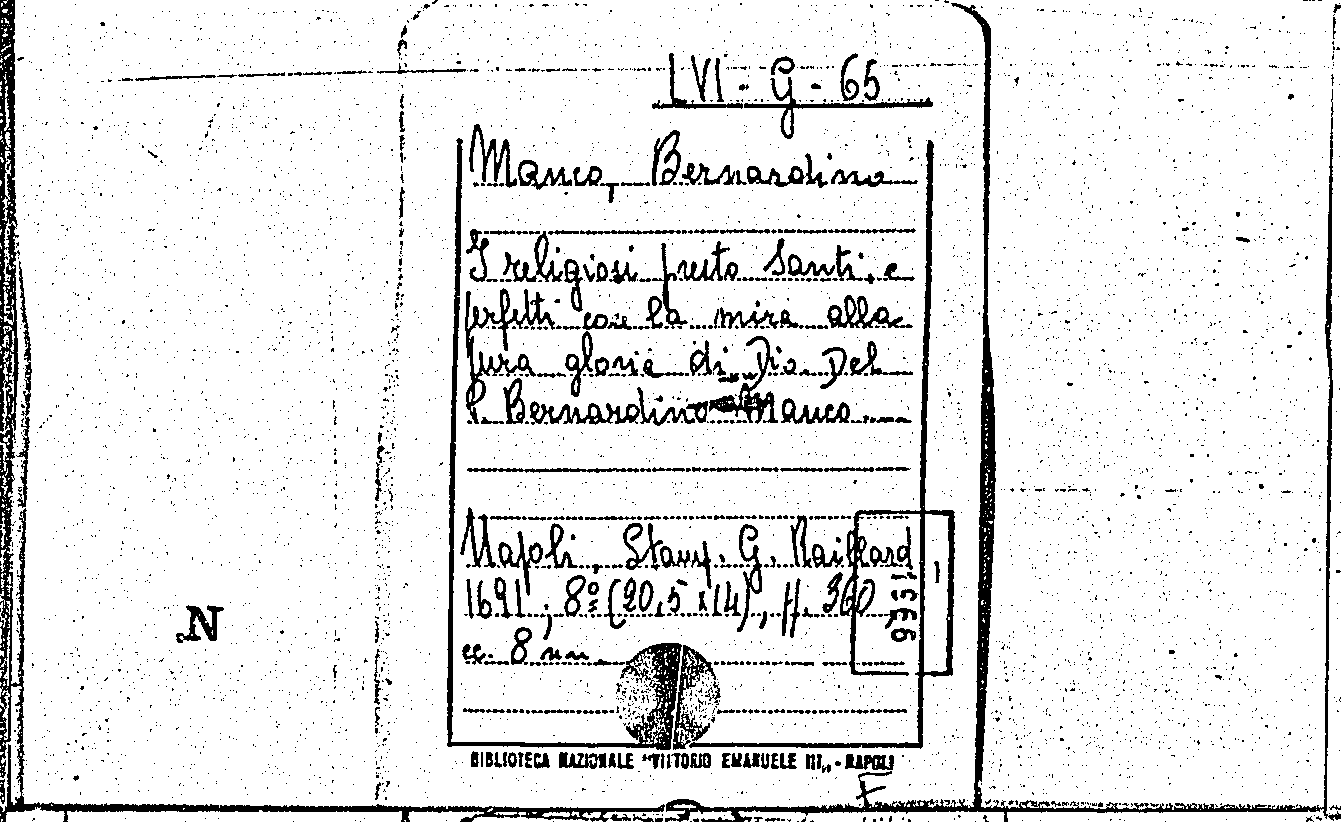 LVI - G - 65
Manco, Bernardino
I religiosi presto Santi, e
perfetti con la mira alla
pura gloria di Dio. Del
P. Bernardino Manco.
Napoli, Stamp. G. Raillard
1691, 8º (20,5 x 14), pp. 360
cc. 8 nn.
BIBLIOTECA NAZIONALE "VITTORIO EMANUELE III„ - NAPOLI
N
F